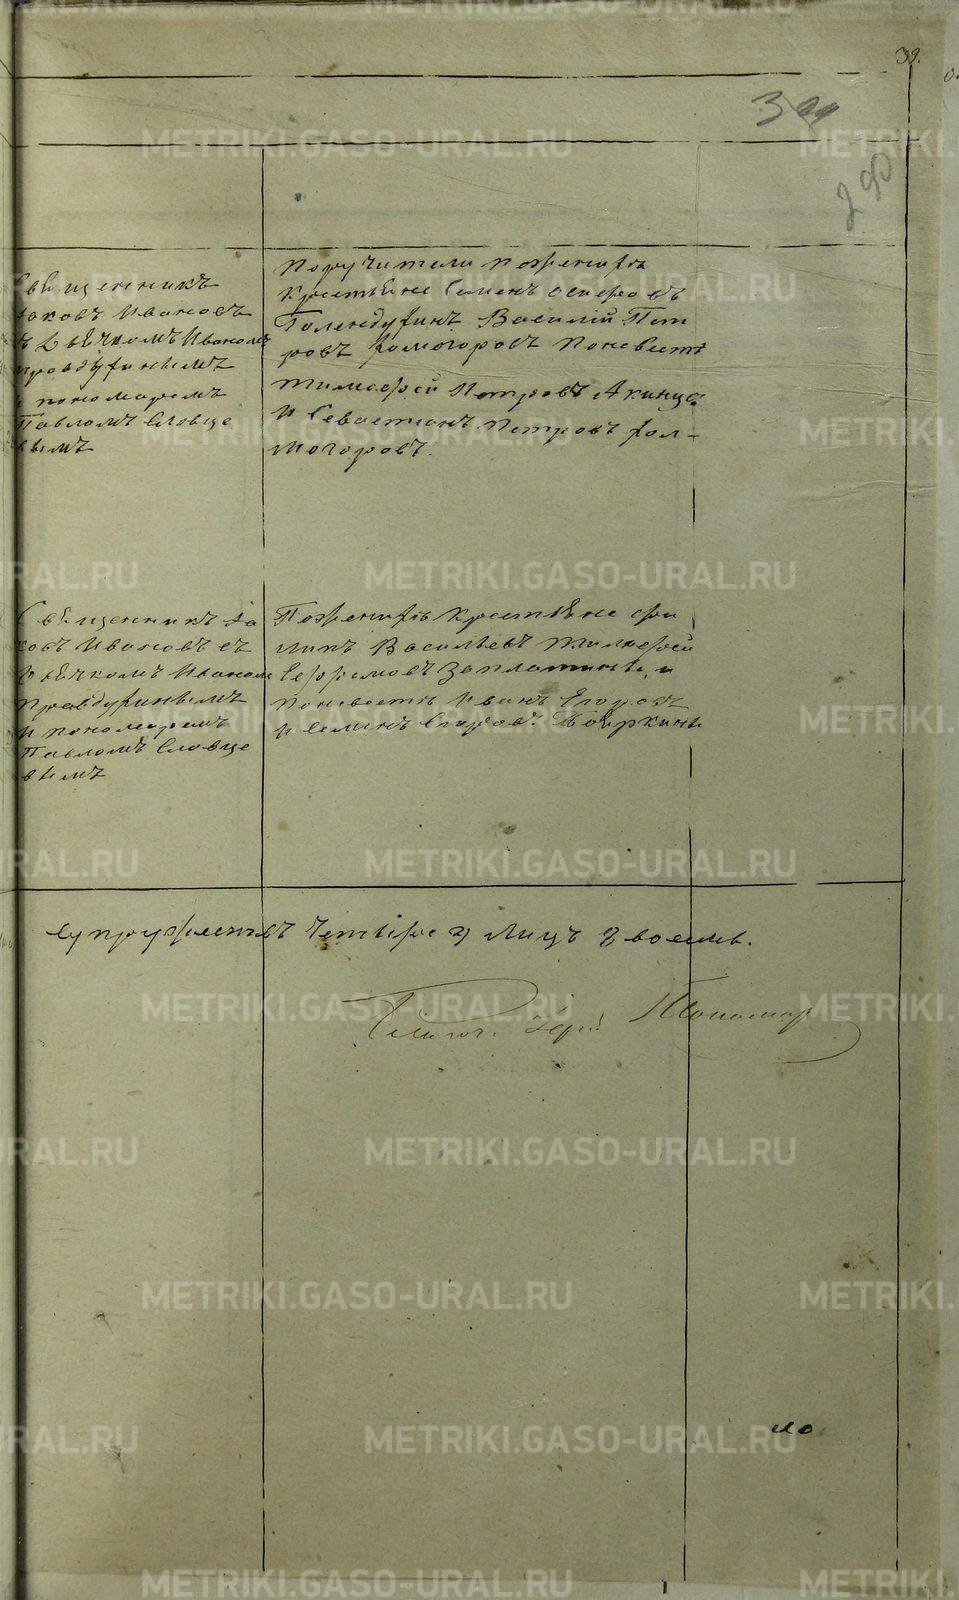 39.
Священникъ
Іаковъ Ивановъ
съ Дьячкомъ Иваномъ
и пономаремъ
Павломъ Словце
вымъ
Поручители по женихѣ
Крестьяне Семенъ Осиповъ
Голендухинъ Василій Пет
ровъ Холмогоровъ по невестѣ
Тимофей Петровъ
и Севастианъ Петровъ Хол-
могоровъ.
Священникъ Іа
ковъ Ивановъ съ
Дьячкомъ Иваномъ
и пономаремъ
Павломъ Словце
вымъ
По женихѣ крестьяне Фи
липъ Васильевъ Тимофей
Ефремовъ Заплатины, и
по невестѣ Иванъ Егоровъ
и Семенъ Егоровъ
супружествъ четыре 4 лицъ 8 восемь.
METRIKI.GASO-URAL.RU